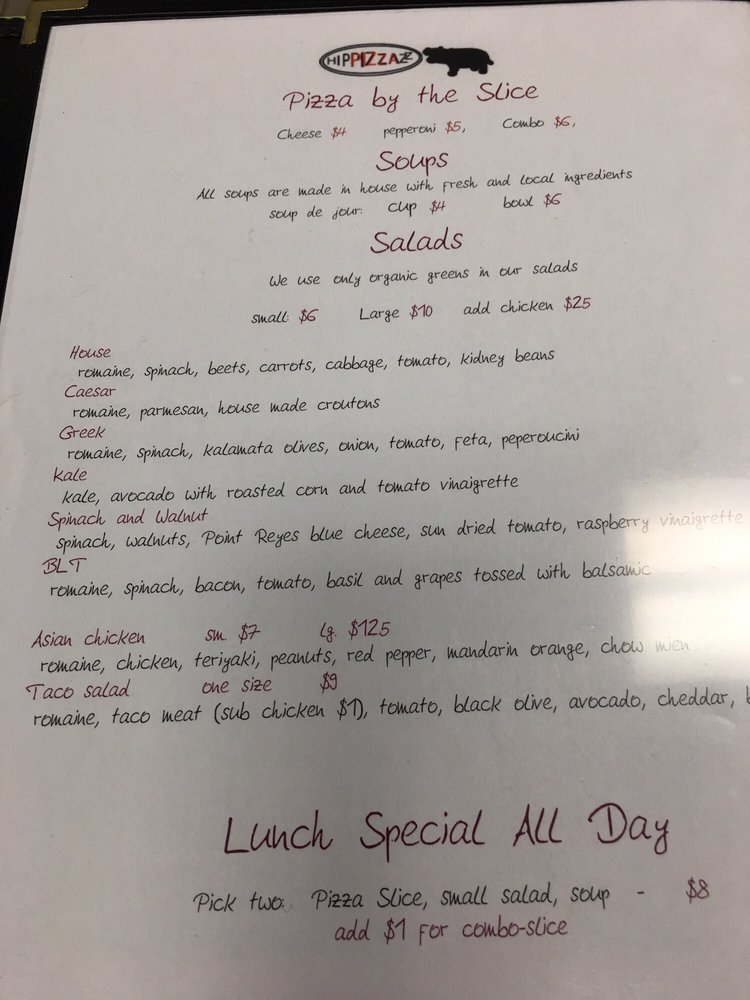 HIPPIZZAZZ
Pizza by the Slice
Cheese $4 pepperoni $5, Combo $6,
Soups
All soups are made in house with fresh and local ingredients
soup de jour: cup $4 bowl $6
Salads
We use only organic greens in our salads
small: $6 Large $10 add chicken $25
House
romaine, spinach, beets, carrots, cabbage, tomato, kidney beans
Caesar
romaine, parmesan, house made croutons
Greek
romaine, spinach, kalamata olives, onion, tomato, feta, peperoucini
Kale
kale, avocado with roasted corn and tomato vinaigrette
Spinach and Walnut
spinach, walnuts, Point Reyes blue cheese, sun dried tomato, raspberry vinaigrette
BLT
romaine, spinach, bacon, tomato, basil and grapes tossed with balsamic
Asian chicken sm. $7 lg. $125
romaine, chicken, teriyaki, peanuts, red pepper, mandarin orange, chow mien
Taco salad one size $9
romaine, taco meat (sub chicken $1), tomato, black olive, avocado, cheddar,
Lunch Special All Day
Pick two: Pizza Slice, small salad, soup - $8
add $1 for combo-slice